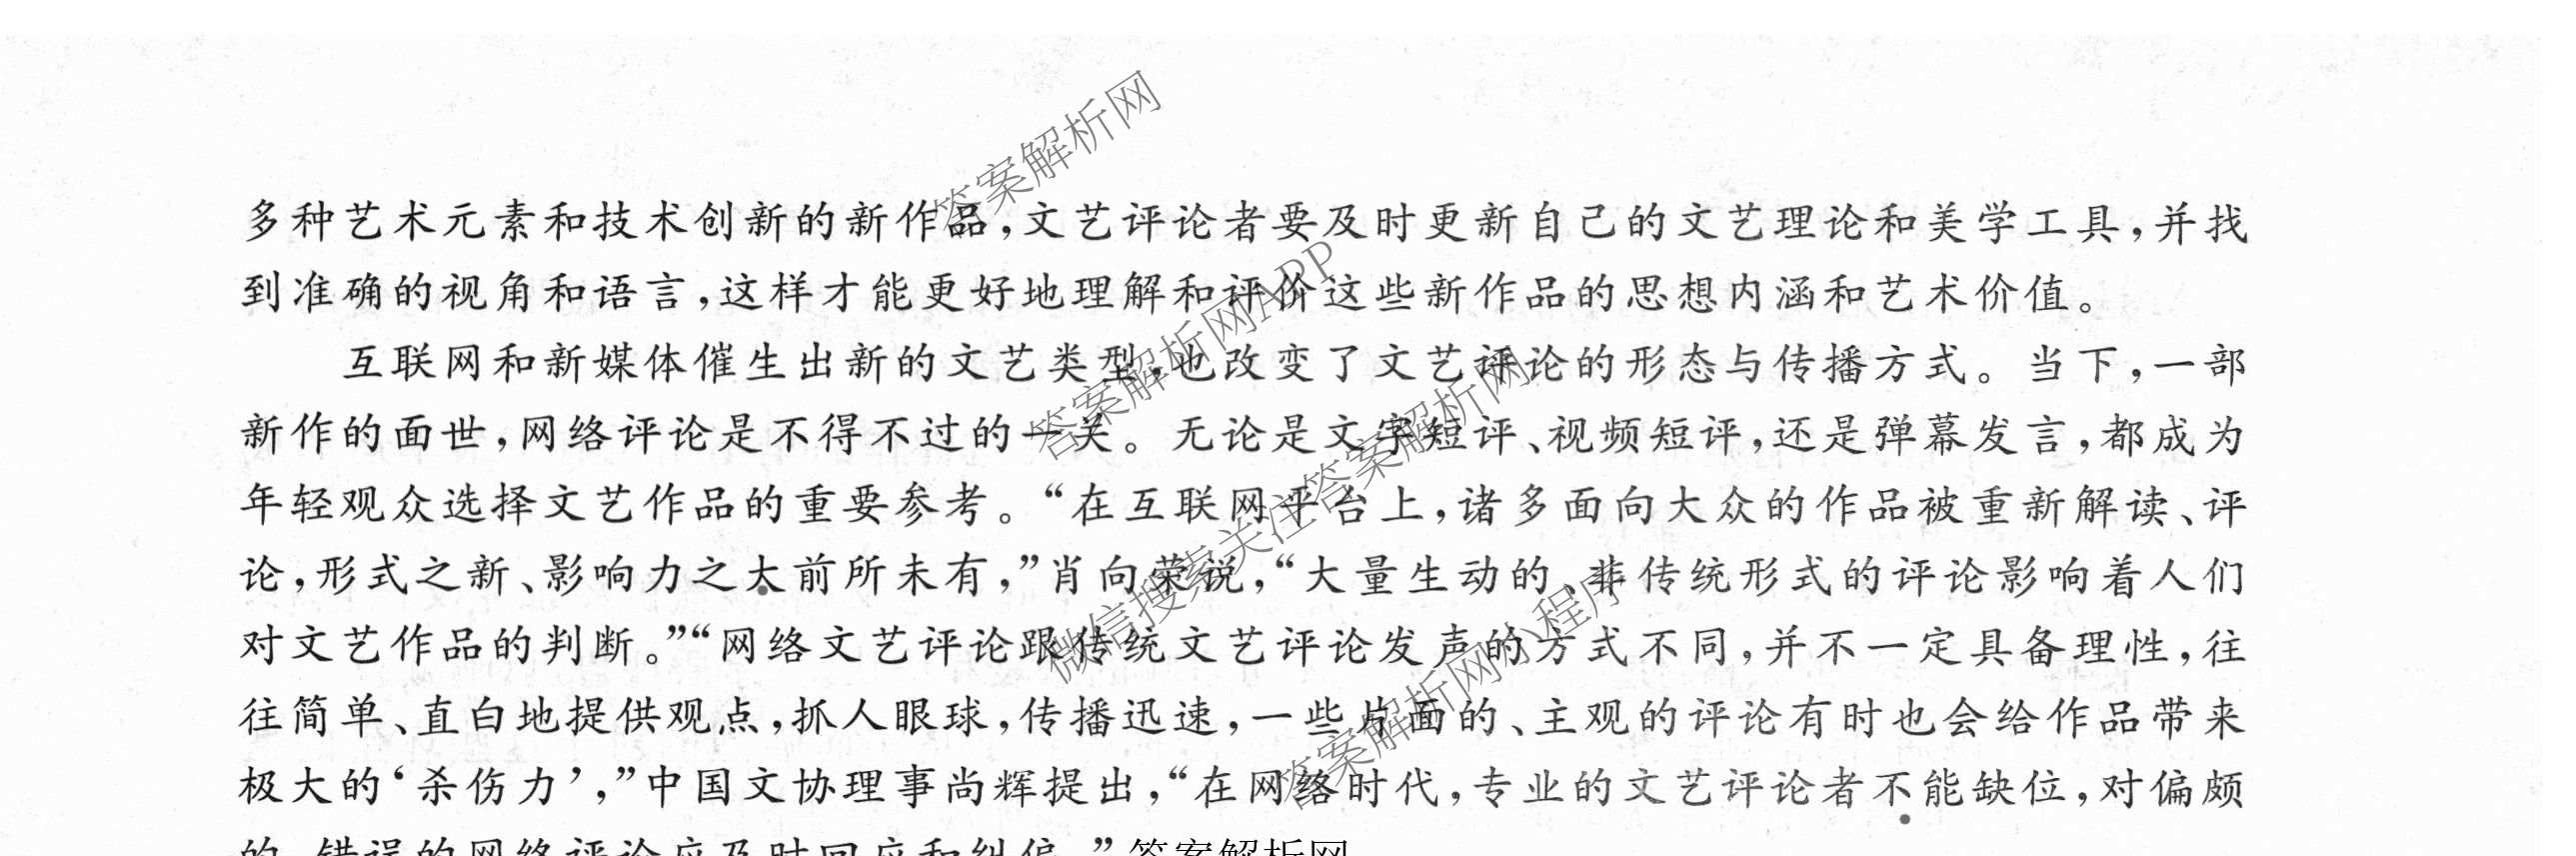 多种艺术元素和技术创新的新作品,文艺评论者要及时更新自己的文艺理论和美学工具,并找
到准确的视角和语言,这样才能更好地理解和评价这些新作品的思想内涵和艺术价值。
互联网和新媒体催生出新的文艺类型,也改变了文艺评论的形态与传播方式。当下,一部
新作的面世,网络评论是不得不过的一关。无论是文字短评、视频短评,还是弹幕发言,都成为
年轻观众选择文艺作品的重要参考。“在互联网平台上,诸多面向大众的作品被重新解读、评
论,形式之新、影响力之大前所未有,”肖向荣说,“大量生动的、非传统形式的评论影响着人们
对文艺作品的判断。”“网络文艺评论跟传统文艺评论发声的方式不同,并不一定具备理性,往
往简单、直白地提供观点,抓人眼球,传播迅速,一些片面的、主观的评论有时也会给作品带来
极大的‘杀伤力’,”中国文协理事尚辉提出,“在网络时代,专业的文艺评论者不能缺位,对偏颇
的、错误的网络评论应及时回应和纠偏。”答案解析网
答案解析网
答案解析网APP
微信搜索关注答案解析网
答案解析网小程序